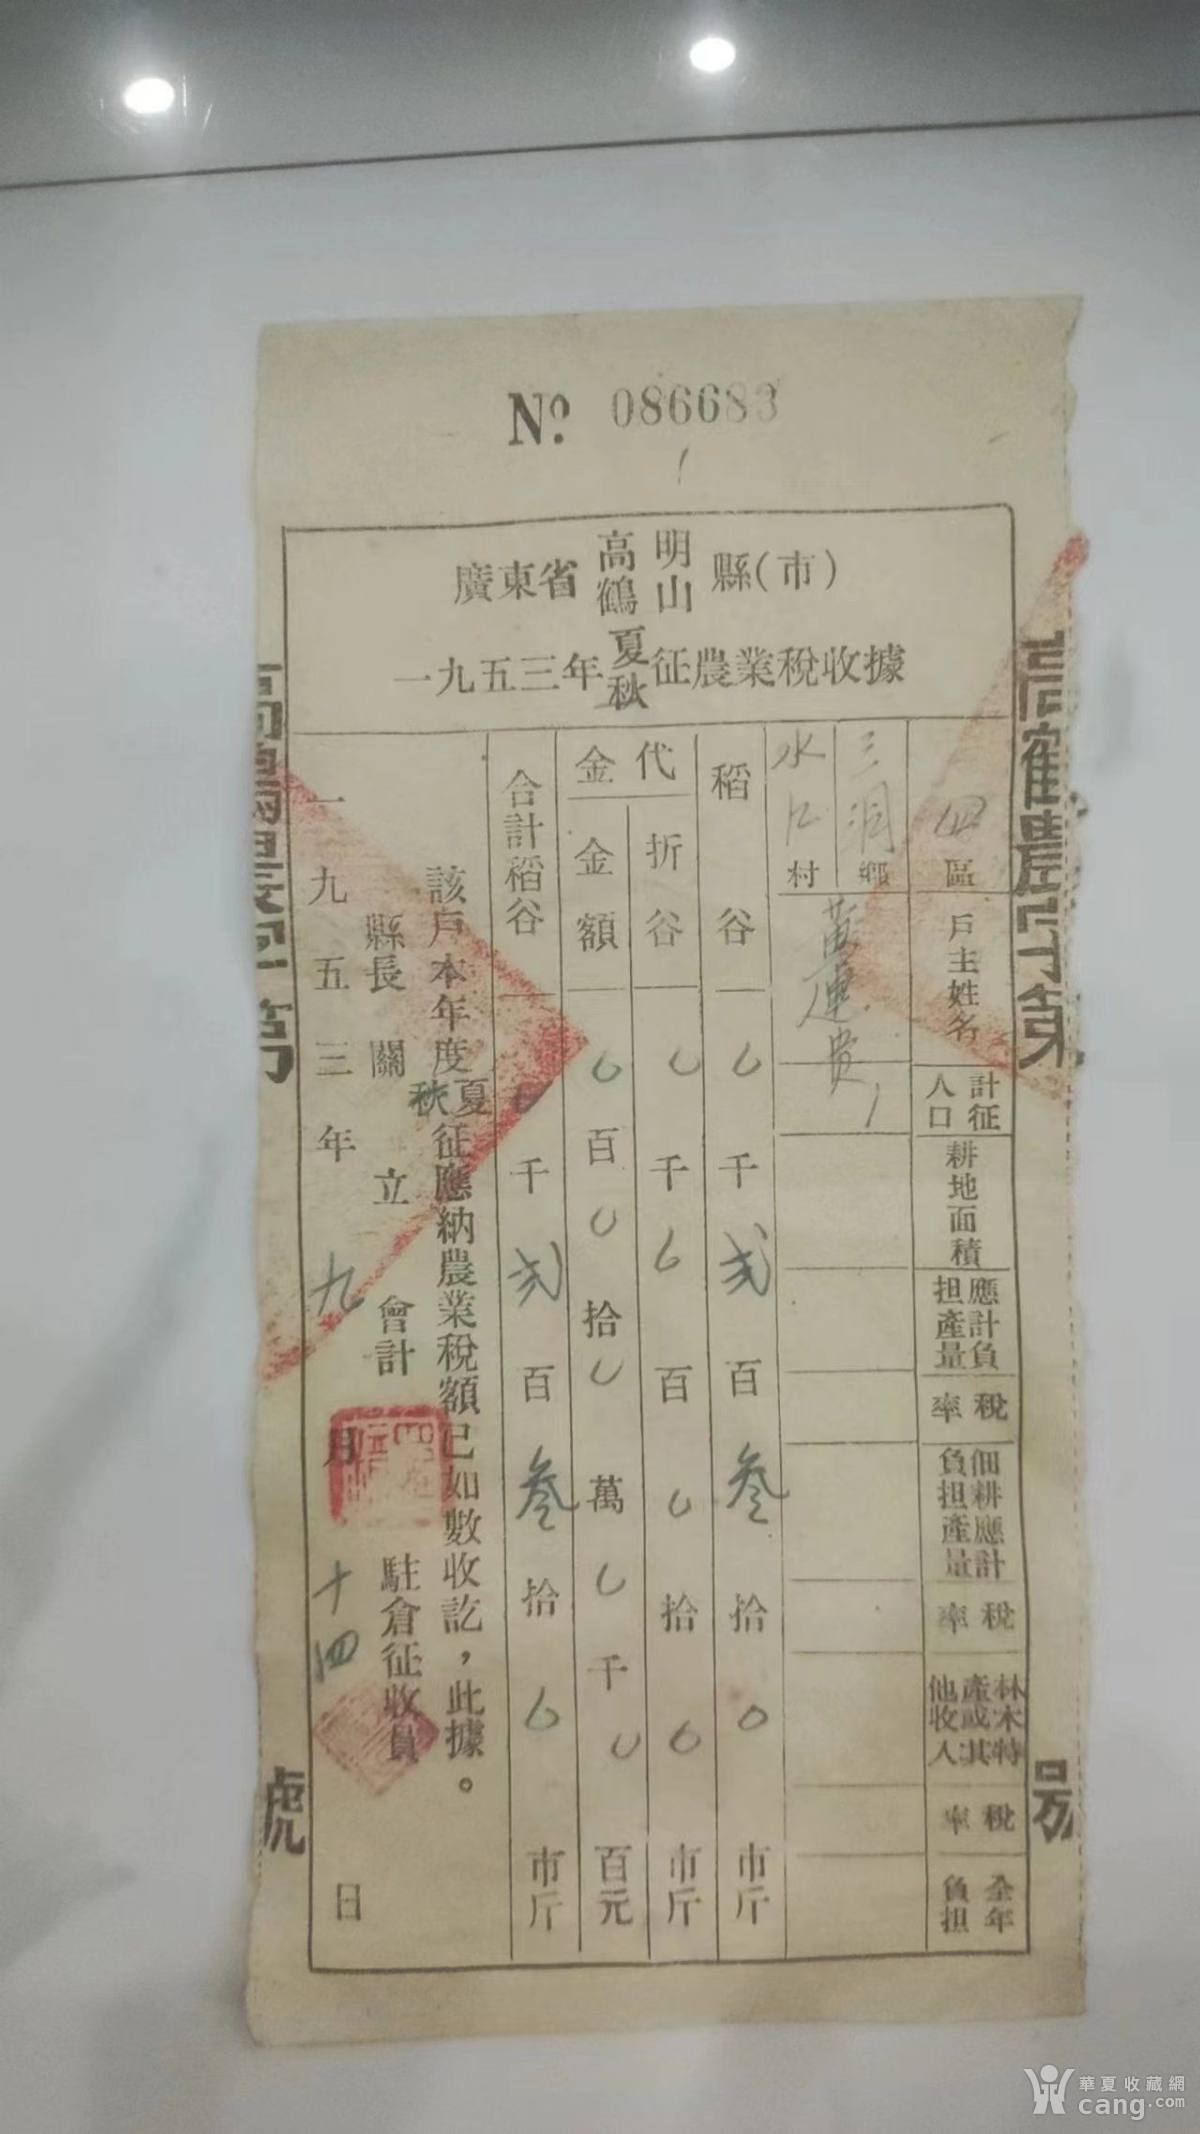 № 086683
廣東省高明鶴山縣(市)
一九五三年夏秋征農業稅收據
四區
三洞鄉
水口村
戶主姓名
黃連贵
計征人口
耕地面積
應計負担產量
稅率
佃耕應計負担產量
稅率
林木特產或其他收入
稅率
全年負担
稻谷 0千弍百叁拾0市斤
代金
折谷 0千0百0拾0市斤
金額 0百0拾0萬0千0百元
合計稻谷 0千弍百叁拾0市斤
該戶本年度夏秋征應納農業稅額已如數收訖，此據。
縣長 關立 會計 駐倉征收員
一九五三年九月十四日
高鶴農字第 號
高鶴農字第 號
華夏收藏網
cang.com